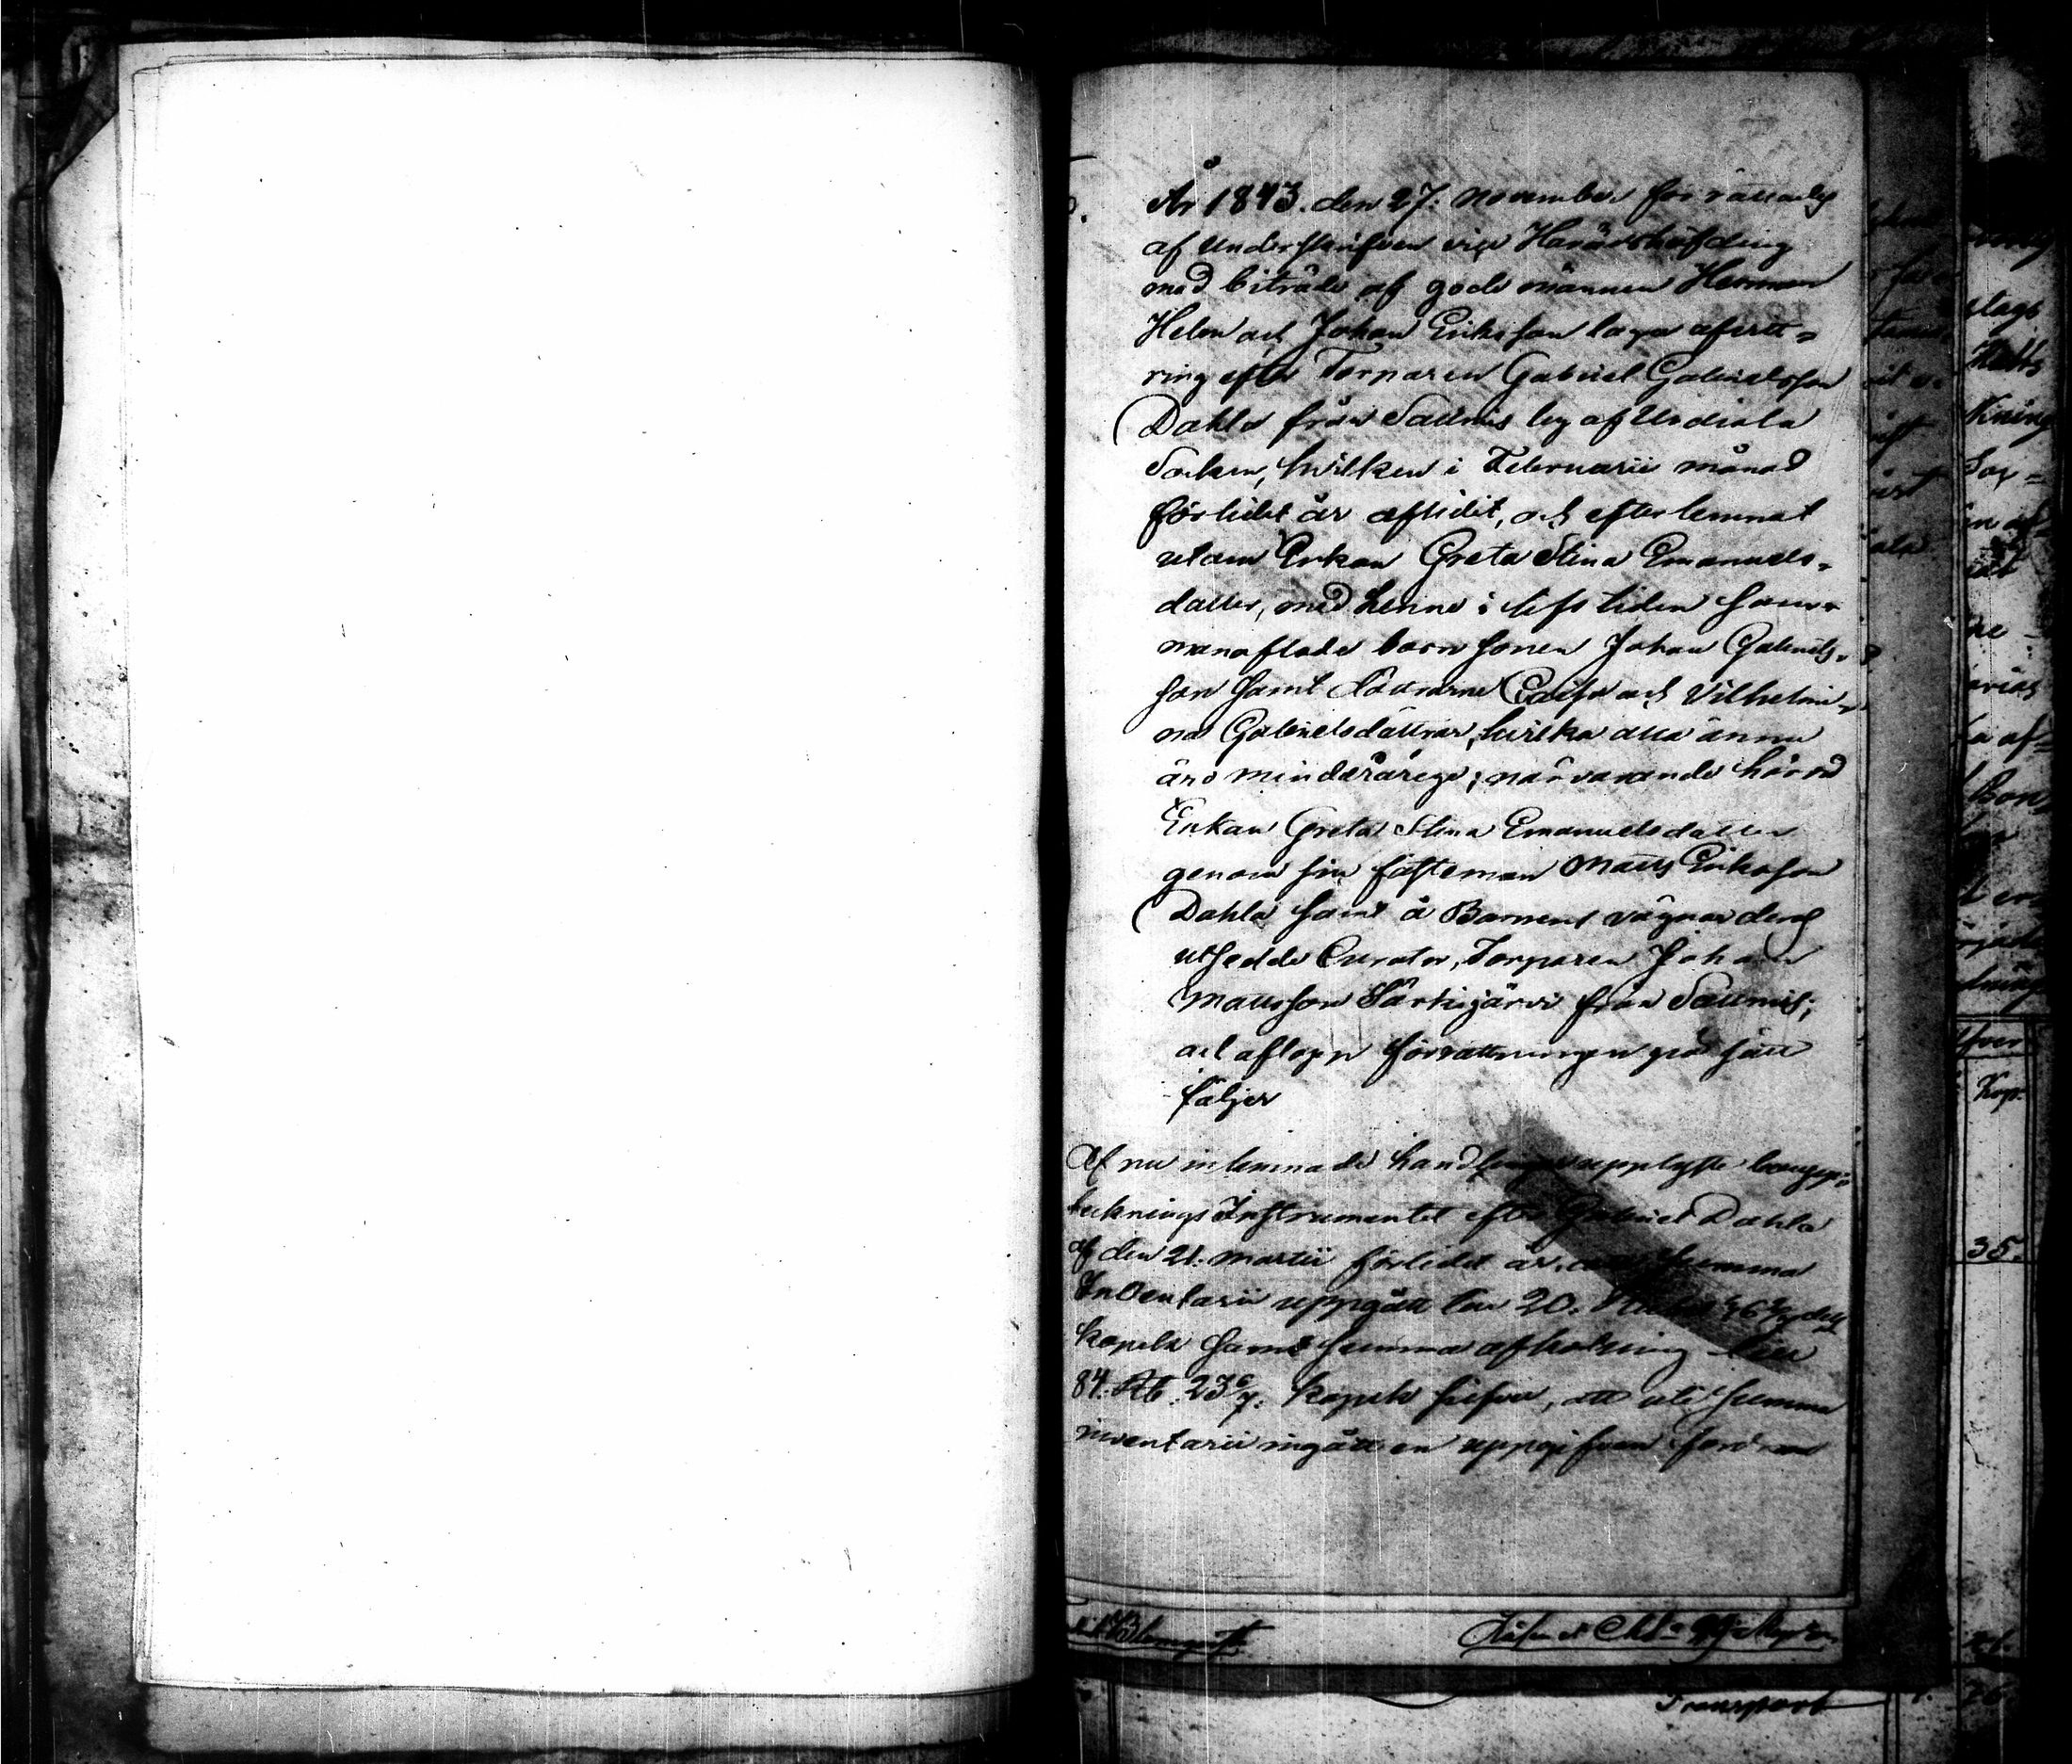 År 1843. den 27. November förrättades
af Underskrifven vice Häradshöfding
med biträde af gode männen Herman
Helen och Johan Eriksson laga afvitt-
ring efter Torparen Gabriel Gabrielsson
Dahla från Salmis by af Urdiala
Socken, hvilken i Februarii månad
förlidit år aflidit, och efterlemnat
utom Enkan Greta Stina Emanuels-
dotter, med henne i lifstiden sam-
manaflade barn sonen Johan Gabriels-
son samt döttrarne Caisa och Vilhelmi-
na Gabrielsdöttrar, hvilka alla ännu
äro minderårige; närvarande hörd
Enkan Greta Stina Emanuelsdotter
genom sin fästeman Matts Eriksson
Dahla samt å Barnens vägnar deras
utsedde Curator, Torparen Johan
Mattsson Särkijärvi från Salmis;
och aflopp förrättningen på sätt
följer
Af nu inlemnade handlingar upplyste bouppt-
teknings Instrumentet efter Gabriel Dahla
af den 21. Martii förlidet år, att summa
Inventarii uppgått till 20.
kopek samt summa afkortning till
84. Rb. 23 6/7. kopek silfver, att uti summa
inventarii ingått en uppgifven fordran
Transport
35.
Kop.